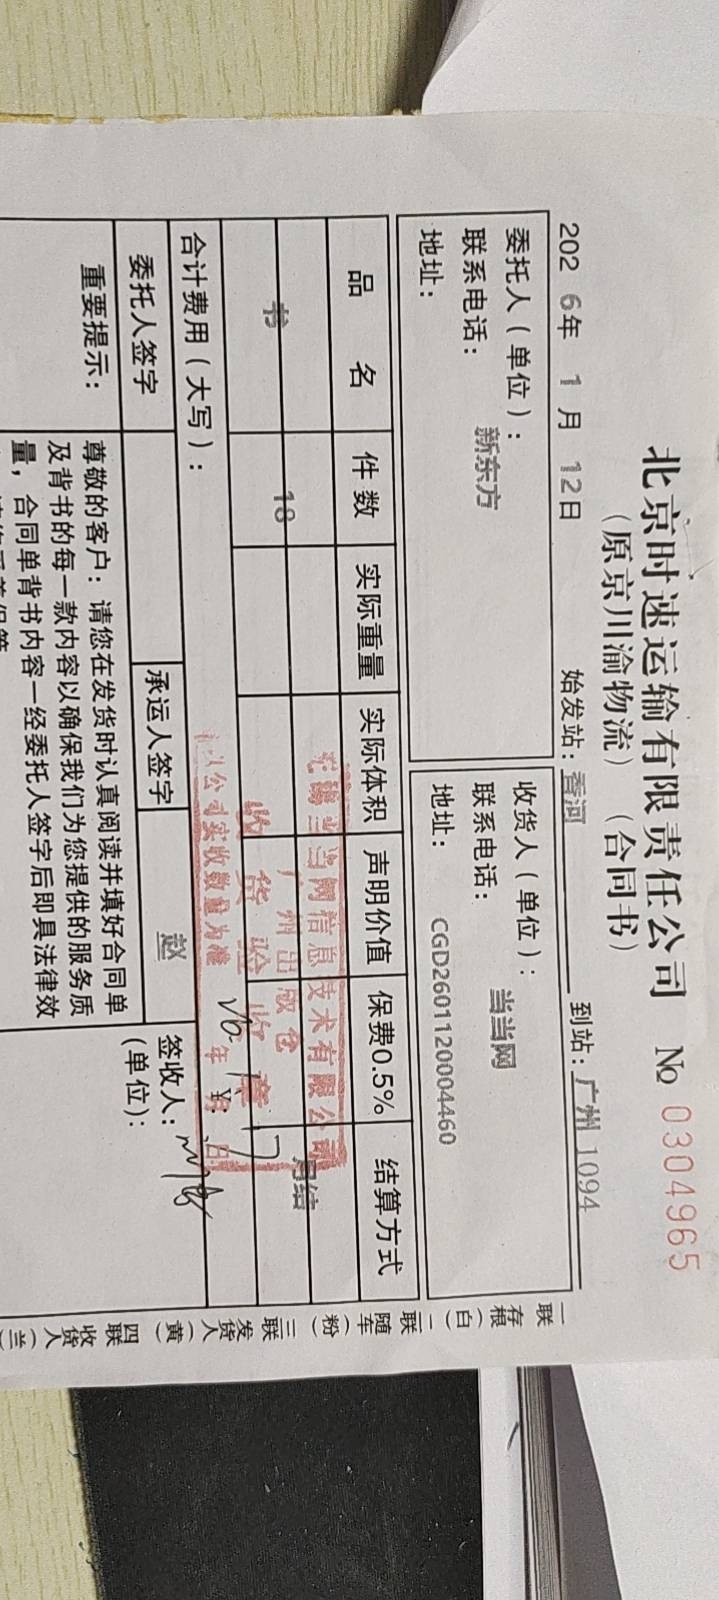 北京时速运输有限责任公司 № 0304965
（原京川渝物流）（合同书）
2026年 1月 12日 始发站：香河 到站：广州 1094
委托人（单位）： 新东方
联系电话：
地址：
收货人（单位）： 当当网
联系电话：
地址： CGD2601120004460
品 名 件数 实际重量 实际体积 声明价值 保费0.5% 结算方式
书 18 月结
当当网信息技术有限公司
广州出版仓
收货验收章
公司实收数量为准 年 月 日
合计费用（大写）：
委托人签字 承运人签字 赵 签收人：
（单位）：
重要提示： 尊敬的客户：请您在发货时认真阅读并填好合同单
及背书的每一款内容以确保我们为您提供的服务质
量，合同单背书内容一经委托人签字后即具法律效
一联 存根（白） 二联 随车（粉） 三联 发货人（黄） 四联 收货人（兰）